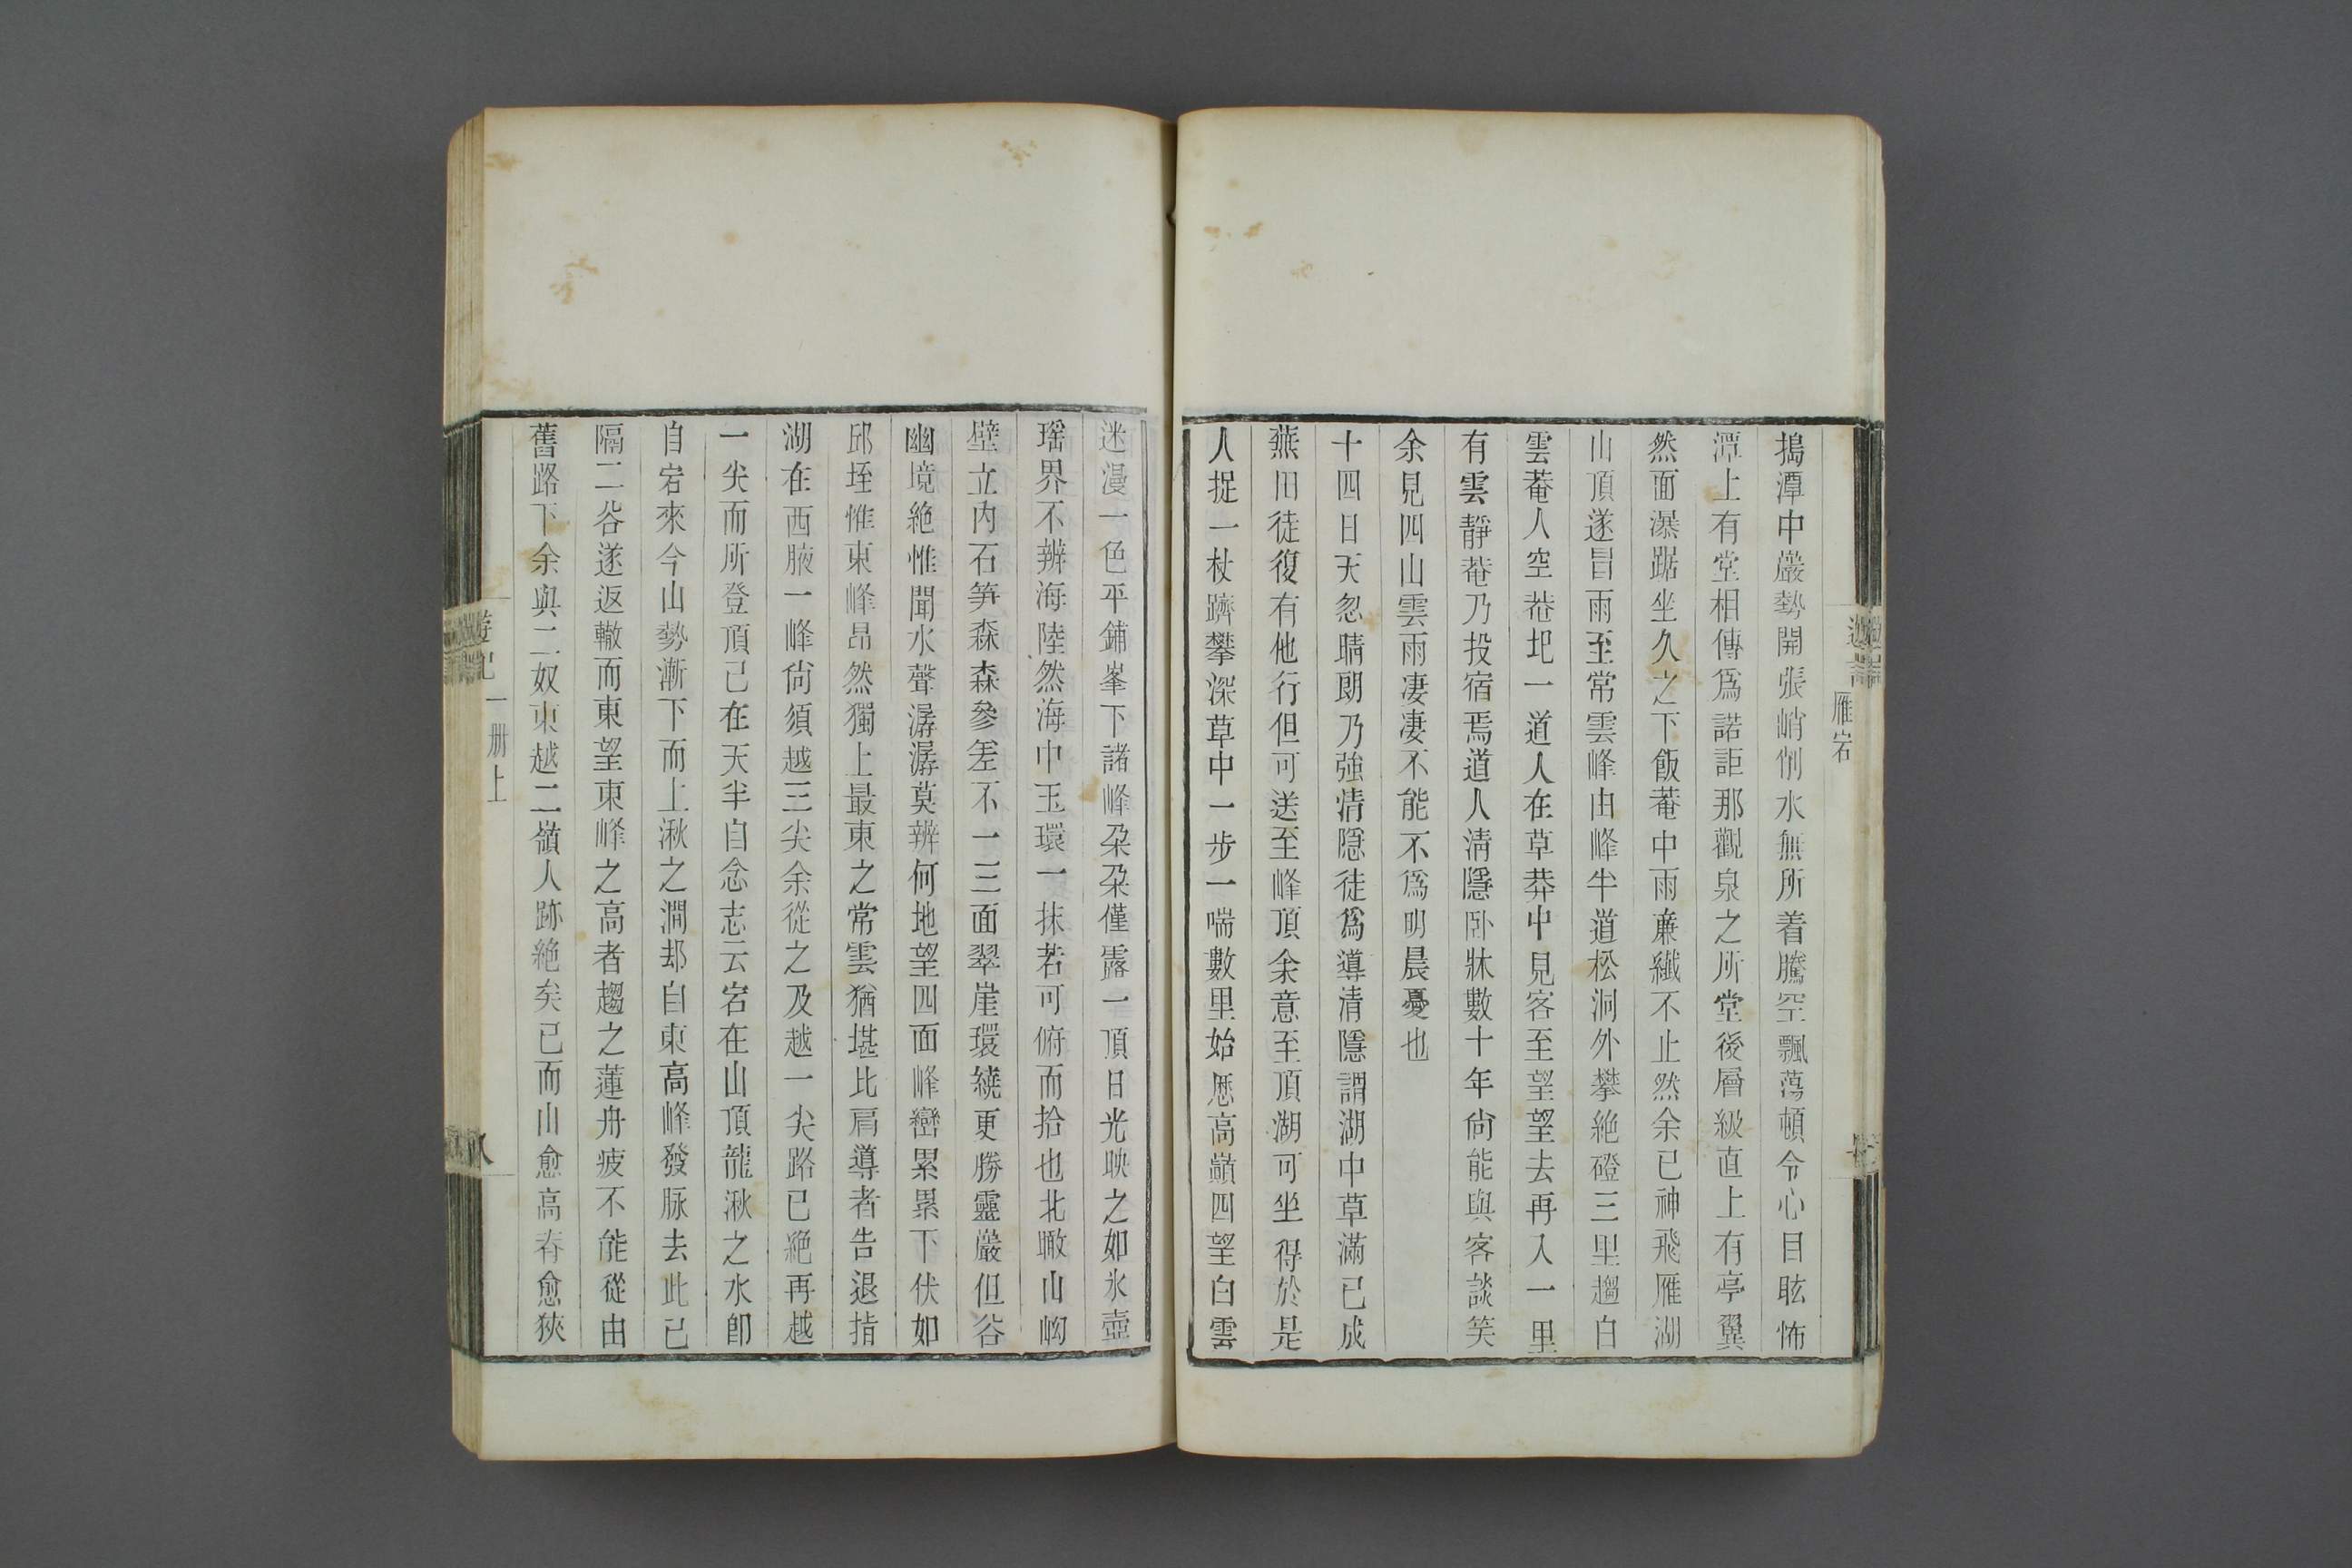 雁宕
搗潭中巖勢開張峭削水無所着騰空飄蕩頓令心目眩怖
潭上有堂相傳爲諾詎那觀泉之所堂後層級直上有亭翼
然面瀑踞坐久之下飯菴中雨廉纖不止然余已神飛雁湖
山頂遂冒雨至常雲峰由峰半道松洞外攀絶磴三里趨白
雲菴人空菴圯一道人在草莽中見客至望望去再入一里
有雲靜菴乃投宿焉道人淸隱卧牀數十年尙能與客談笑
余見四山雲雨凄凄不能不爲明晨憂也
十四日天忽晴朗乃強清隱徒爲導清隱謂湖中草滿已成
蕪田徒復有他行但可送至峰頂余意至頂湖可坐得於是
人捉一杖躋攀深草中一步一喘數里始歷高巔四望白雲
迷漫一色平鋪峯下諸峰朶朶僅露一頂日光映之如氷壺
瑶界不辨海陸然海中玉環一抹若可俯而拾也北瞰山坳
壁立内石笋森森參差不一三面翠崖環繞更勝靈巖但谷
幽境絶惟聞水聲潺潺莫辨何地望四面峰巒累累下伏如
邱垤惟東峰昂然獨上最東之常雲猶堪比肩導者告退指
湖在西腋一峰尙須越三尖余從之及越一尖路已絶再越
一尖而所登頂已在天半自念志云宕在山頂龍湫之水卽
自宕來今山勢漸下而上湫之澗却自東高峰發脉去此已
隔二谷遂返轍而東望東峰之高者趨之蓮舟疲不能從由
舊路下余與二奴東越二嶺人跡絶矣已而山愈高脊愈狹
遊記
一册上